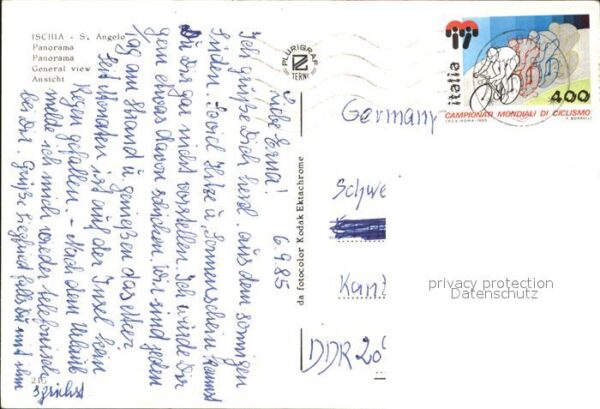 ISCHIA - S. Angelo
Panorama
Panorama
General view
Ansicht
216
PLURIGRAF
TERNI
da fotocolor Kodak Ektachrome
italia
400
CAMPIONATI MONDIALI DI CICLISMO
Germany
Schwe
Kan
DDR 20
privacy protection
Datenschutz
6.9.85
Liebe Erna!
Ich grüße Dich herzl. aus dem sonnigen
Süden. Soviel Hitze u. Sonnenschein kannst
Du Dir gar nicht vorstellen. Ich würde Dir
gern etwas davon schicken. Wir sind jeden
Tag am Strand u. genießen das Meer.
Seit Monaten ist auf der Insel kein
Regen gefallen. - Nach dem Urlaub
melde ich mich wieder telefonisch
bei Dir. Grüße Siegfried falls Du mit ihm
sprichst